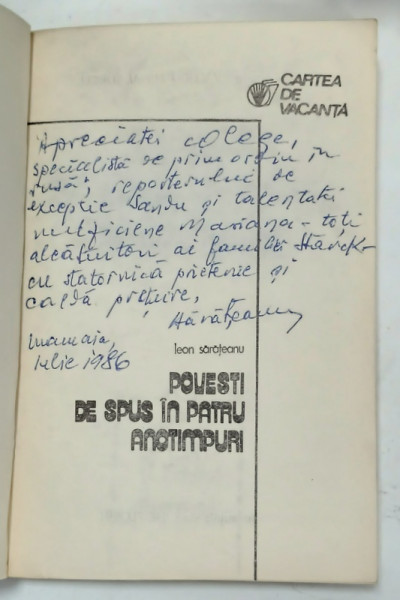 CARTEA
DE
VACANȚA
Apreciatei colege,
specialistă de prim ordin în
rusă, reporterului de
excepție Sandu și talentatei
muziciene Mariana – toți
alcătuitori ai familiei
cu statornică prietenie și
caldă prețuire,
Mamaia,
Iulie 1986
leon sărățeanu
POVESTI
DE SPUS ÎN PATRU
ANOTIMPURI